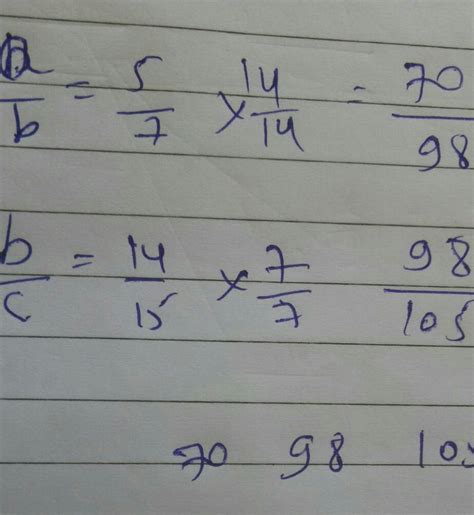 a/b = 5/7 × 14/14 = 70/98
b/c = 14/15 × 7/7 98/105
70 98 105